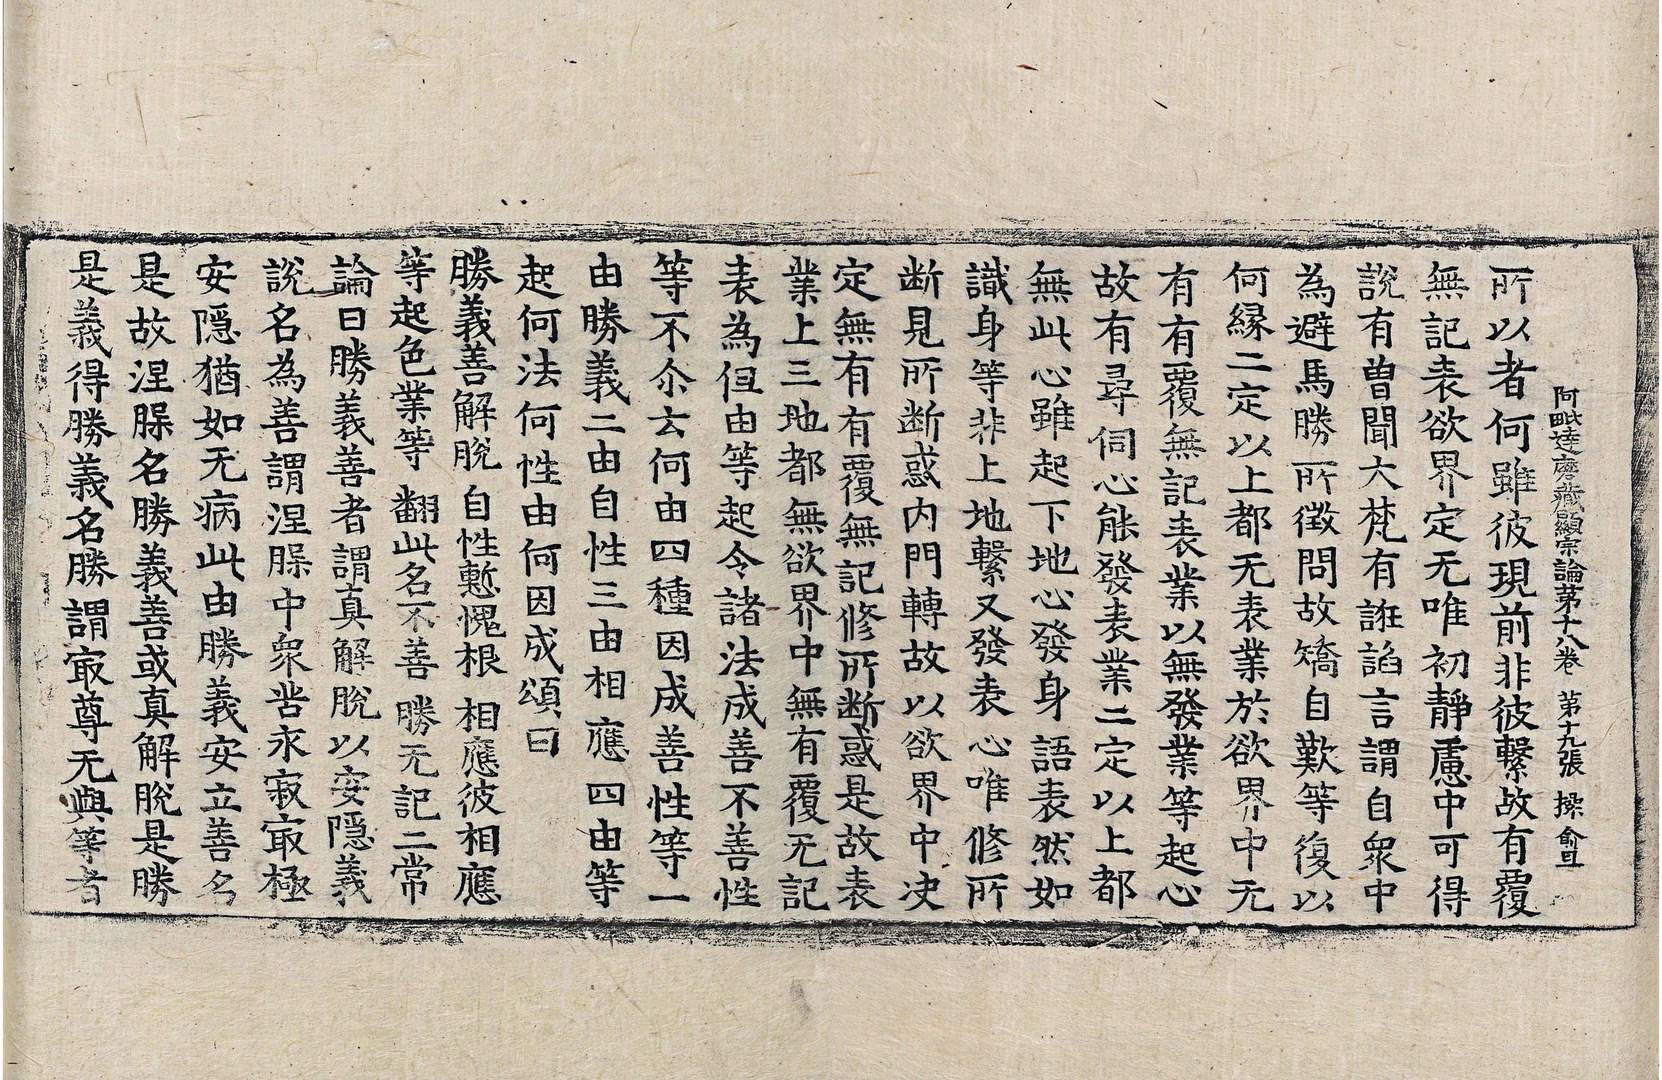 阿毗達磨藏顯宗論苐十八卷 第十九張 操 俞旦
所以者何雖彼現前非彼繫故有覆
無記表欲界定无唯初靜慮中可得
說有曾聞大梵有誑諂言謂自衆中
為避馬勝所徵問故矯自歎等復以
何緣二定以上都无表業於欲界中无
有有覆無記表業以無發業等起心
故有尋伺心能發表業二定以上都
無此心雖起下地心發身語表然如
識身等非上地繫又發表心唯修所
断見所断惑內門轉故以欲界中决
定無有有覆無記修所断惑是故表
業上三地都無欲界中無有覆无記
表為但由等起令諸法成善不善性
等不尒云何由四種因成善性等一
由勝義二由自性三由相應四由等
起何法何性由何因成頌曰
勝義善解脫 自性慙愧根 相應彼相應
等起色業等 翻此名不善 勝无記二常
論曰勝義善者謂真解脫以安隱義
說名為善謂涅槃中衆苦永寂㝡極
安隱猶如无病此由勝義安立善名
是故涅槃名勝義善或真解脫是勝
是義得勝義名勝謂㝡尊无與等者